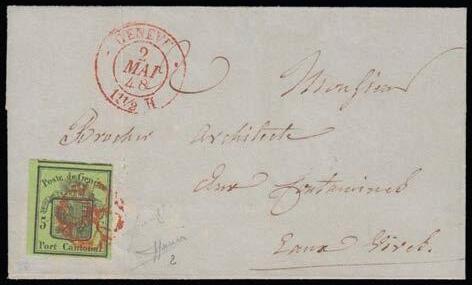 GENEVE
2
MAI
48
1 1/2 H
Monsieur
Brocher Architecte
aux
Eaux Vives.
Poste de Genève
5
Port Cantonal
2